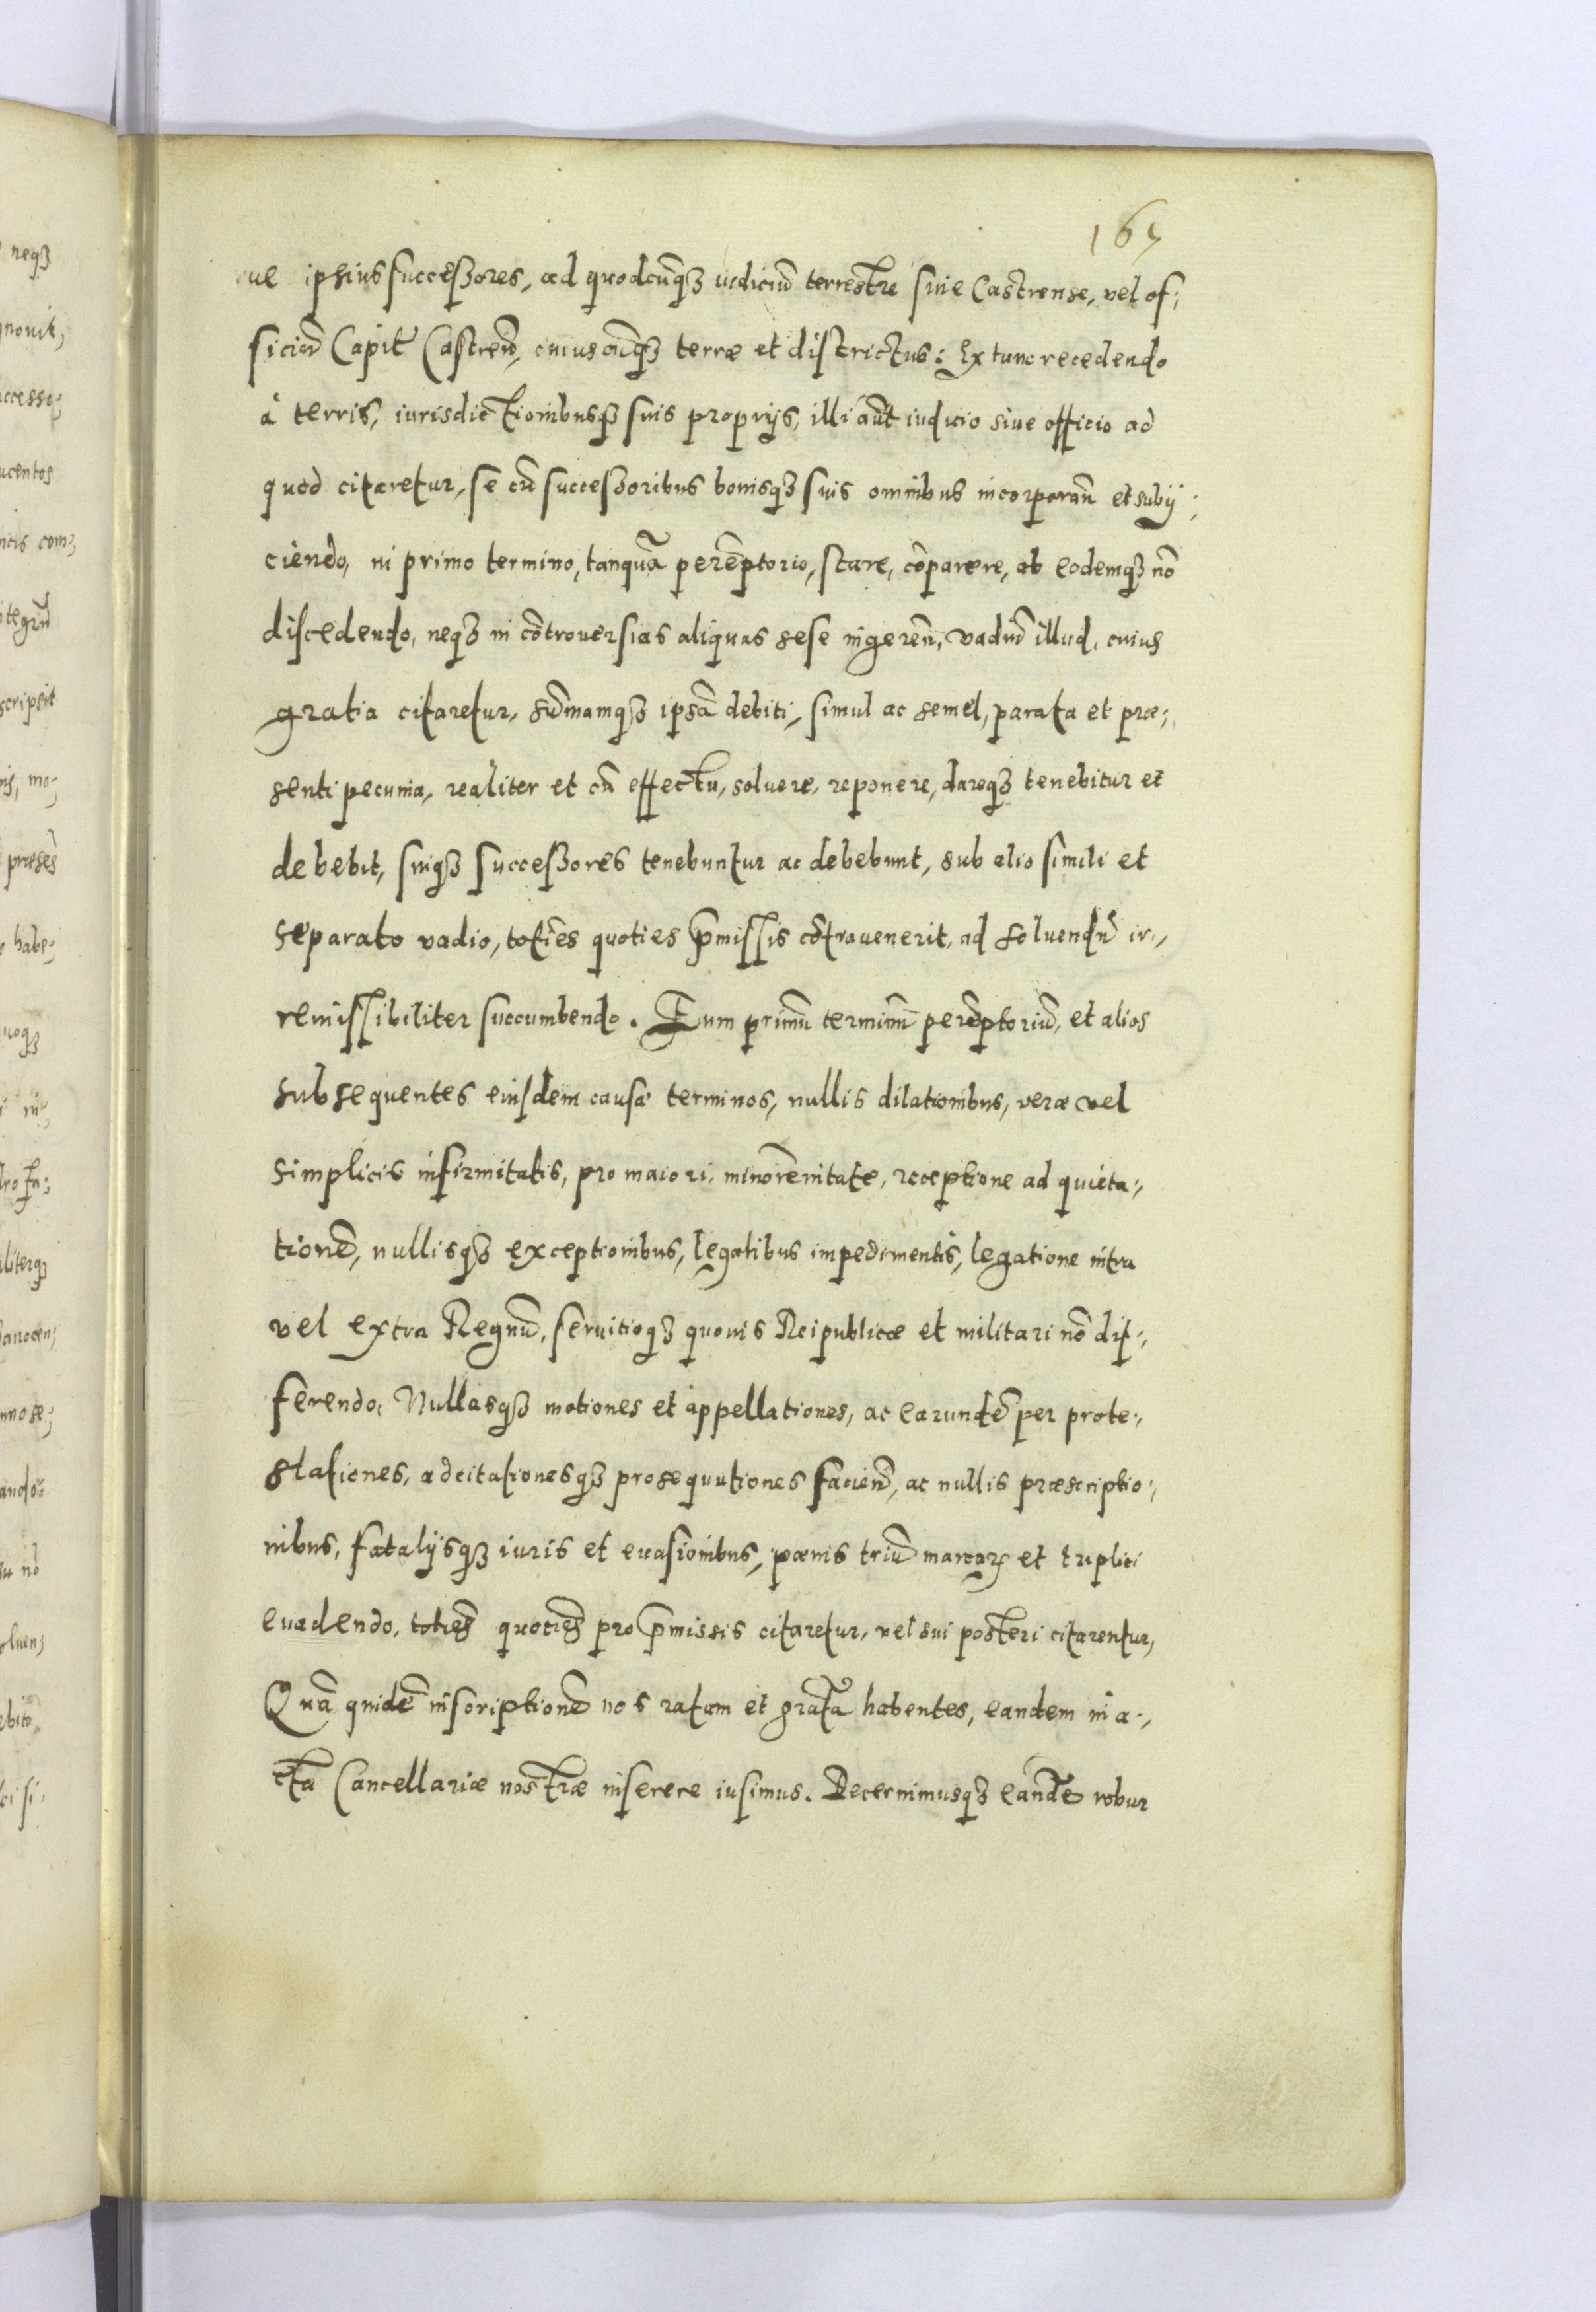 165
ue ipsius successores, ad quodcūq₃ iudiciū terrestre siue Castrense, vel of:
ficiū Capit̄ Castreñ, cuiuscūq₃ terræ et districtus: Ex tunc recedendo
à terris, iurisdictionibusq₃ suis proprijs, illi aūt iudicio siue officio ad
quod citaretur, se cū successoribus bonisq₃ suis omnibus incorporan̄ et subij:
ciendo, in primo termino, tanquā perēptorio, stare, cōparere, ab eodemq₃ nō
discedendo, neq₃ in cōtrouersias aliquas sese ingeren̄, vadiū illud, cuius
gratia citaretur, sūmamq₃ ipsā debiti, simul ac semel, parata et præ:
senti pecunia, realiter et cū effectu, soluere, reponere, dareq₃ tenebitur et
debebit, suiq₃ successores tenebuntur ac debebunt, sub alio simili et
separato vadio, toties quoties p̄missis cōtrauenerit, ad soluendū ir:
remissibiliter succumbendo. Eum primū terminū perēptoriū, et alios
subsequentes eiusdem causæ terminos, nullis dilationibus, veræ vel
simplicis infirmitatis, pro maiori, minorēnitate, receptione ad quieta:
tionē, nullisq₃ exceptionibus, legalibus impedimentis, legatione intra
vel extra Regnū, seruitioq₃ quouis Reipublicæ et militari nō dif:
ferendo, Nullasq₃ motiones et appellationes, ac earundē per prote:
stationes, adcitationesq₃ prosequutiones facien̄, ac nullis præscriptio:
nibus, fatalijsq₃ iuris et euasionibus, pœnis triū marcarꝝ et triplici
euadendo, toties quoties pro p̄missis citaretur, vel sui posteri citarentur,
Quā quidē inscriptionē nos ratam et gratā habentes, eandem in a:
cta Cancellariæ nostræ inserere iusimus. Decernimusq₃ eandē robur